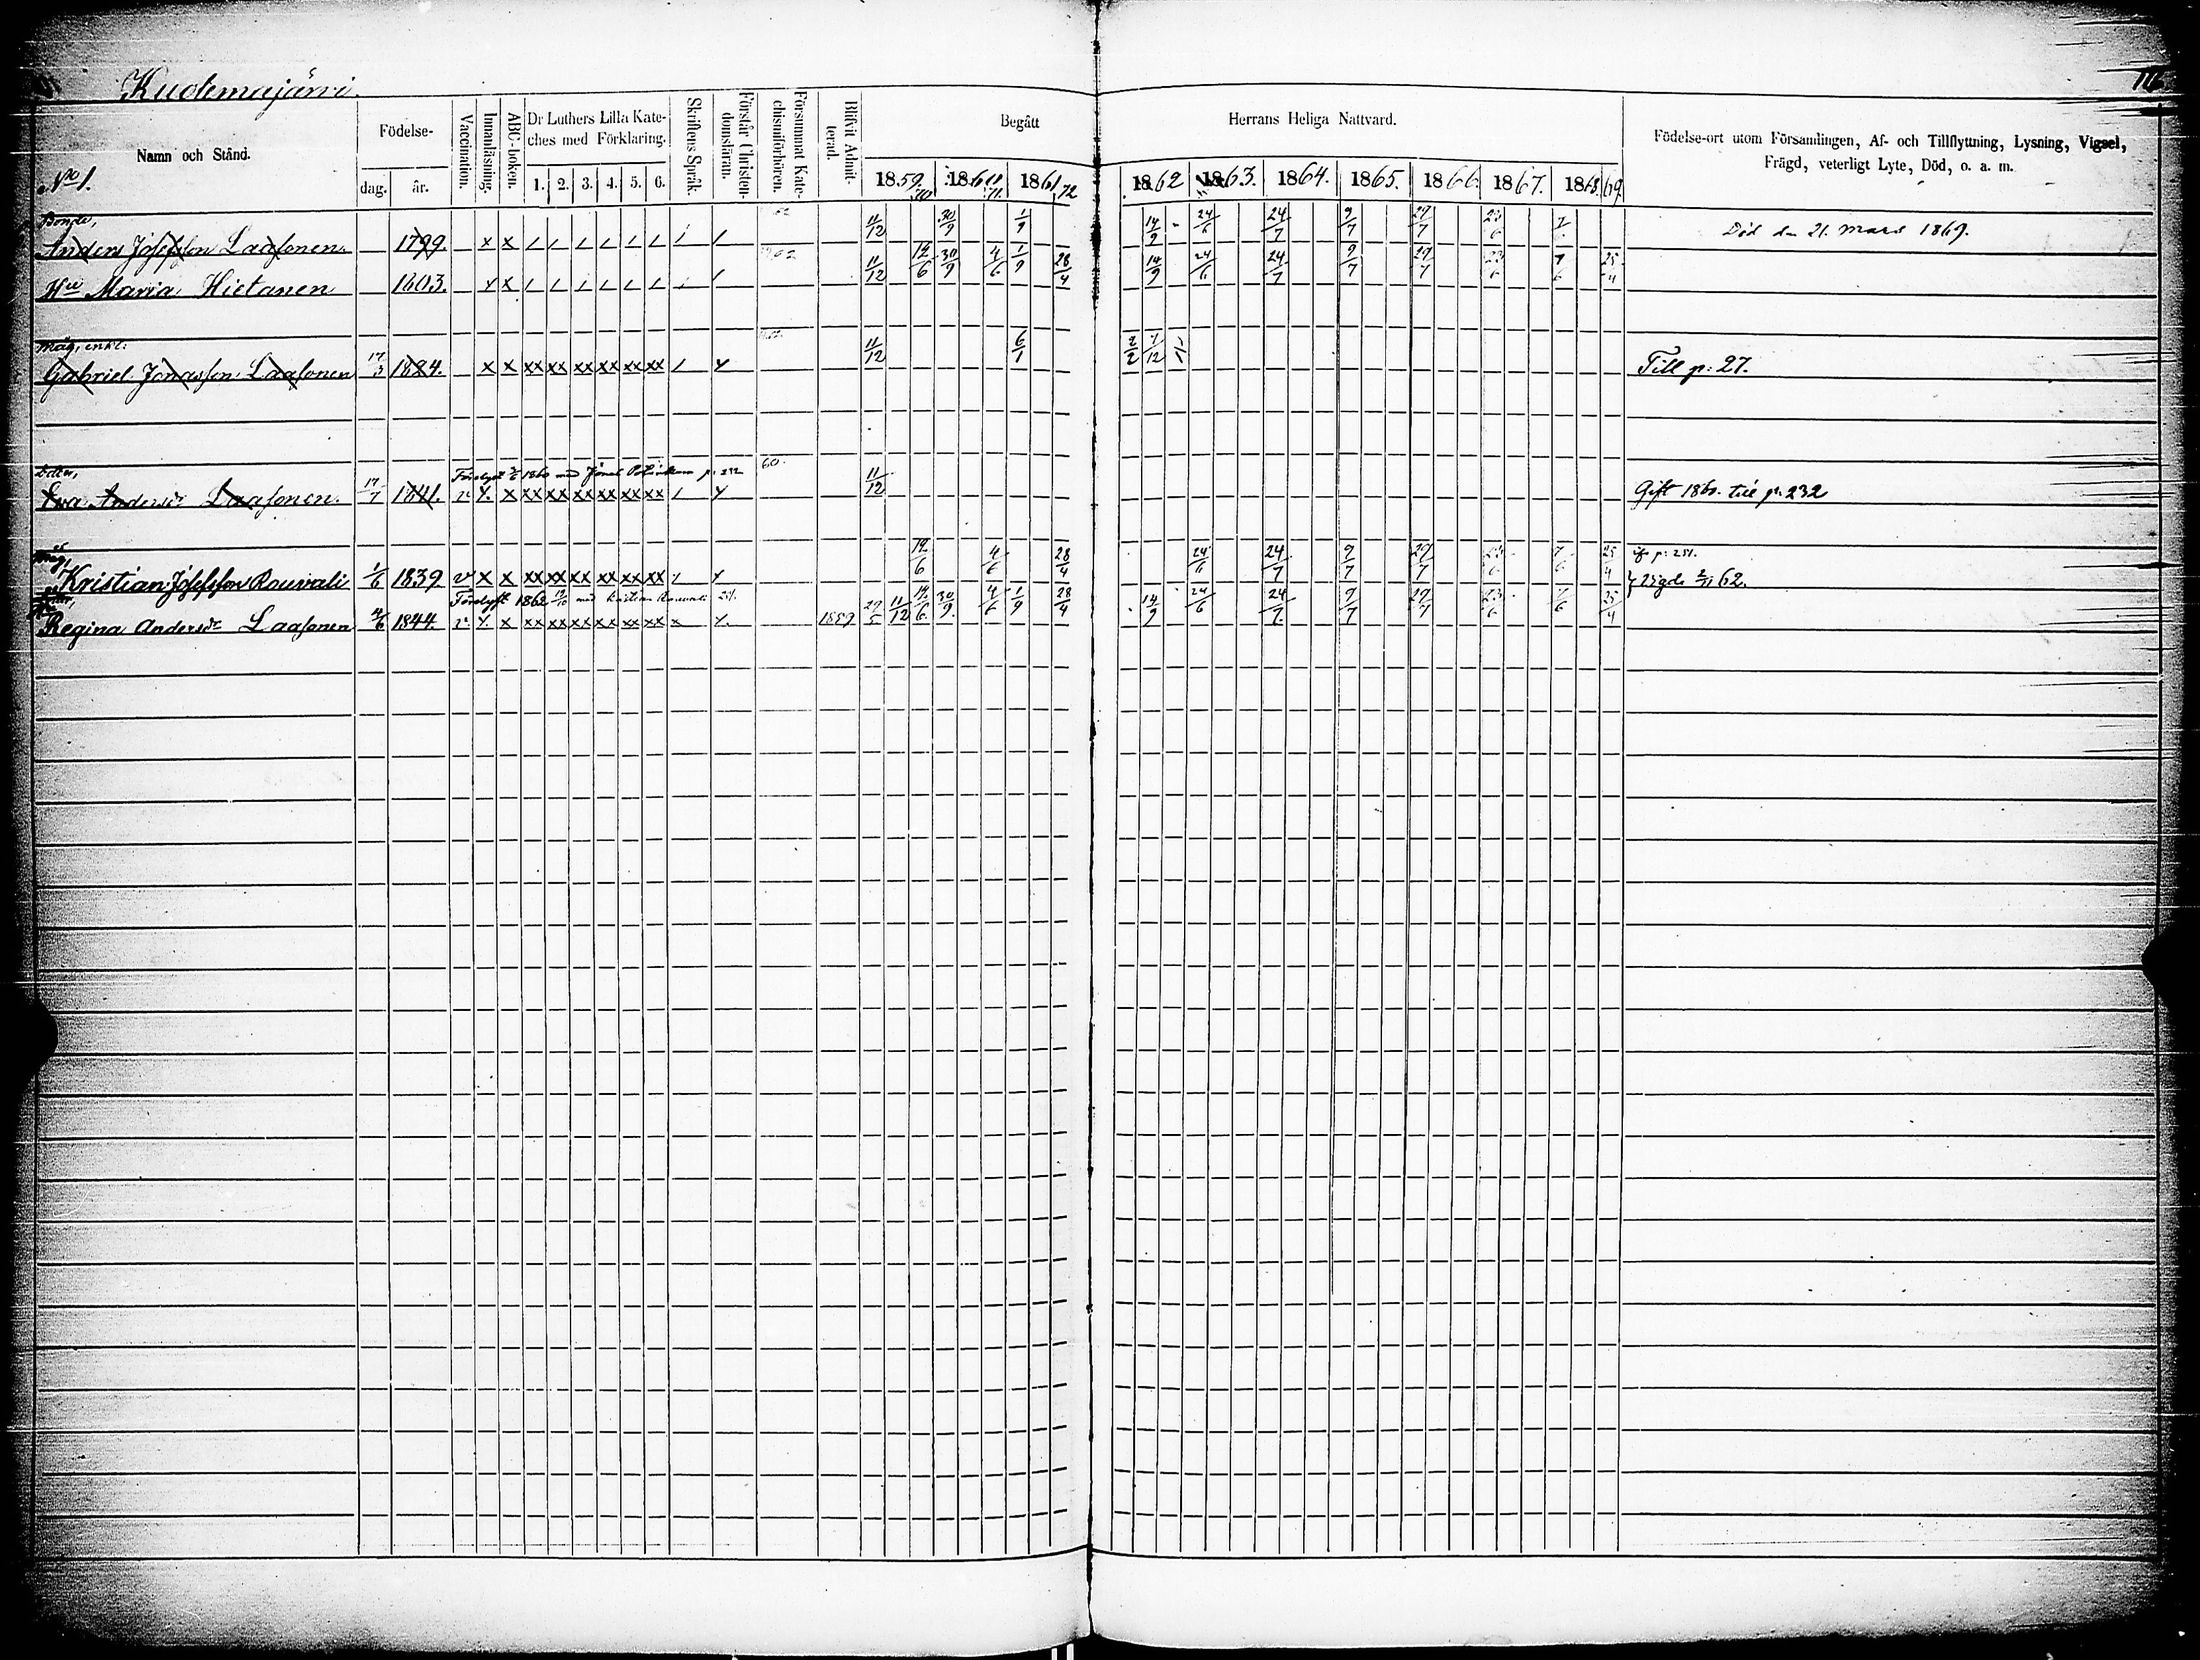 Kudemajärvi
Namn och Stånd.
No 1.
Födelse-
dag. år.
Vaccination.
Innanläsning.
ABC-boken.
Dr Luthers Lilla Kate-
ches med Förklaring.
1. 2. 3. 4. 5. 6.
Skriftens Språk.
Förstår Christen-
domsläran.
Försummat Kate-
chismiförhören.
Blifvit Admit-
terad.
Begått Herrans Heliga Nattvard.
1859. 1861 72 1862 1863. 1864. 1865. 1866. 1867. 1868. 69.
Födelse-ort utom Församlingen, Af- och Tillflyttning, Lysning, Vigsel,
Frägd, veterligt Lyte, Död, o. a. m.
Bonde,
Anders Josefsson Laasonen 1799. x x 11/12 30/9 1/9 14/9 24/6 24/7 9/7 27/7 23/6 7/6 Död den 21. Mars 1869.
Hu Maria Hietanen 1803. x x 11/12 12/6 30/9 4/6 1/9 28/4 14/9 24/6 24/7 9/7 27/7 23/6 7/6 25/4
Måg, enkl:
Gabriel Jonasson Laasonen 17/3 1824. x x xx xx xx xx xx xx 11/12 6/1 2/2 7/12 1/1 Till p: 27.
Dotter,
Eva Andersdr Laasonen 17/7 1841. x xx xx xx xx xx xx 60. 11/12 Gift 1860. till p: 232
Måg,
Kristian Josefsson Rouvali 1/6 1839 x x xx xx xx xx xx xx 12/6 4/6 28/4 24/6 24/7 9/7 27/7 23/6 7/6 25/4 if p: 251.
Vigde 2/11 62.
Förlyst 1862 12/10 med Kristian Rouvali 251.
Regina Andersdr Laasonen 4/6 1844. x xx xx xx xx xx xx x 1859 27/5 11/12 12/6 30/9 4/6 1/9 28/4 14/9 24/6 24/7 9/7 27/7 23/6 7/6 25/4